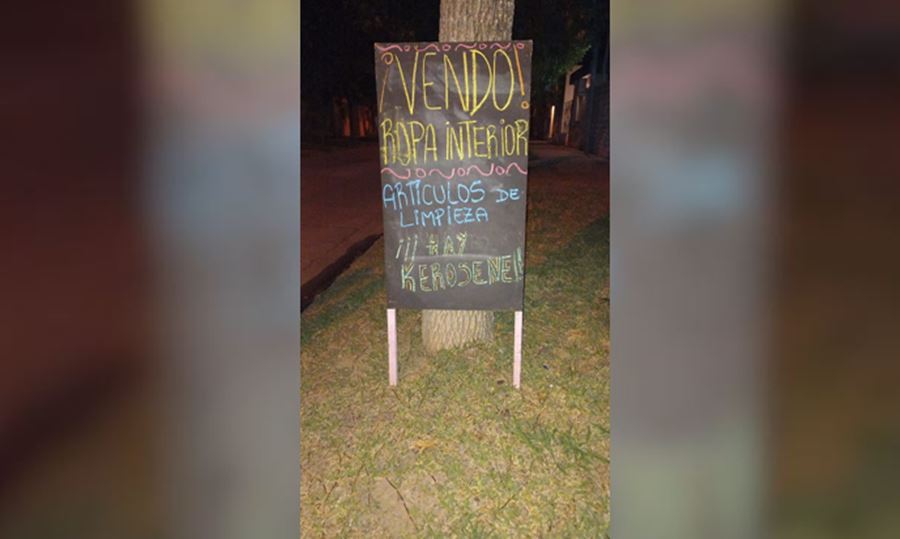 ¡VENDO!
ROPA INTERIOR
ARTÍCULOS DE
LIMPIEZA
¡¡¡ HAY
KEROSENE!!